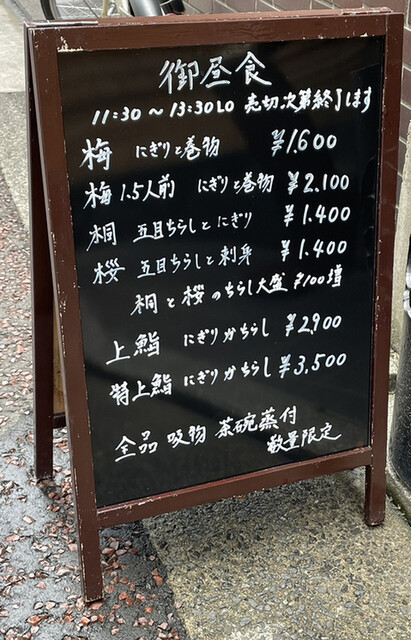 御昼食
11:30～13:30LO 売切次第終了します
梅 にぎりと巻物 ¥1.600
梅 1.5人前 にぎりと巻物 ¥2.100
桐 五目ちらしとにぎり ¥1.400
桜 五目ちらしと刺身 ¥1.400
桐と桜のちらし大盛 ¥100増
上鮨 にぎりかちらし ¥2900
特上鮨 にぎりかちらし ¥3.500
全品 吸物 茶碗蒸付
数量限定